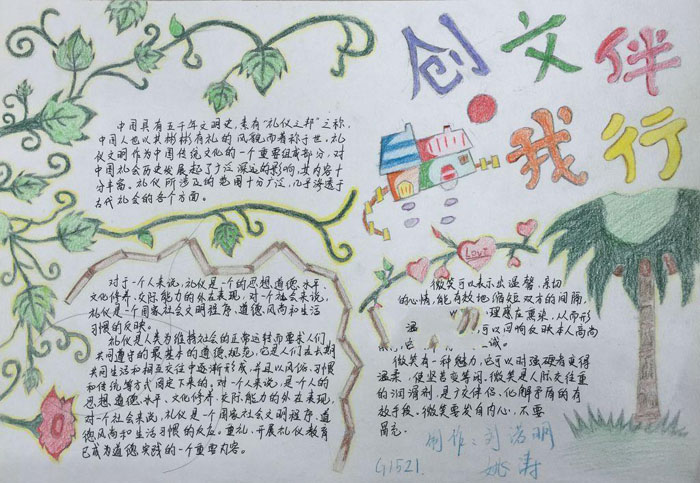 创文伴
我行
中国具有五千年文明史，素有“礼仪之邦”之称，
中国人也以其彬彬有礼的风貌而著称于世。礼
仪文明作为中国传统文化的一个重要组成部分，对
中国社会历史发展起了广泛深远的影响，其内容十
分丰富。礼仪所涉及的范围十分广泛，几乎渗透于
古代社会的各个方面。
对于一个人来说，礼仪是一个的思想道德水平、
文化修养、交际能力的外在表现，对一个社会来说，
礼仪是一个国家社会文明程序、道德风尚和生活
习惯的反映。
礼仪是人类为维持社会的正常运转而要求人们
共同遵守的最基本的道德规范，它是人们在长期
共同生活和相互交往中逐渐形成，并且以风俗、习惯
和传统等方式固定下来的，对一个人来说，是个人的
思想道德水平、文化修养、交际能力的外在表现，
对一个社会来说，礼仪是一个国家社会文明程序、道
德风尚和生活习惯的反应。重礼、开展礼仪教育
已成为道德实践的一个重要内容。
Love
微笑可以表示出温馨、亲切
的心情，能有效地缩短双方的间隔，
理感应熏染，从而形
温 可以回响反映本人高尚
诚。
微笑有一种魅力，它可以时强硬者变得
温柔，使坚苦变等闲。微笑是人际交往重
的润滑剂，是广交伴侣、化解矛盾的有
效手段。微笑要发自内心，不要
冒充。
制作：刘洛明
姚涛
G1521